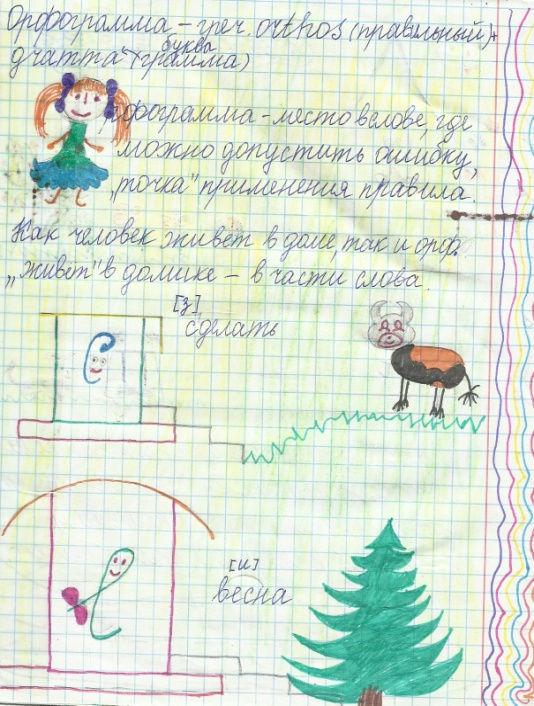 Орфограмма – греч. orthos (правильный) +
буква
gчатта" (грамма)
Орфограмма – место в слове, где
можно допустить ошибку,
„точка" применения правила.
Как человек живет в доме, так и орф.
„живет" в домике – в части слова.
[з]
сделать
[и]
весна